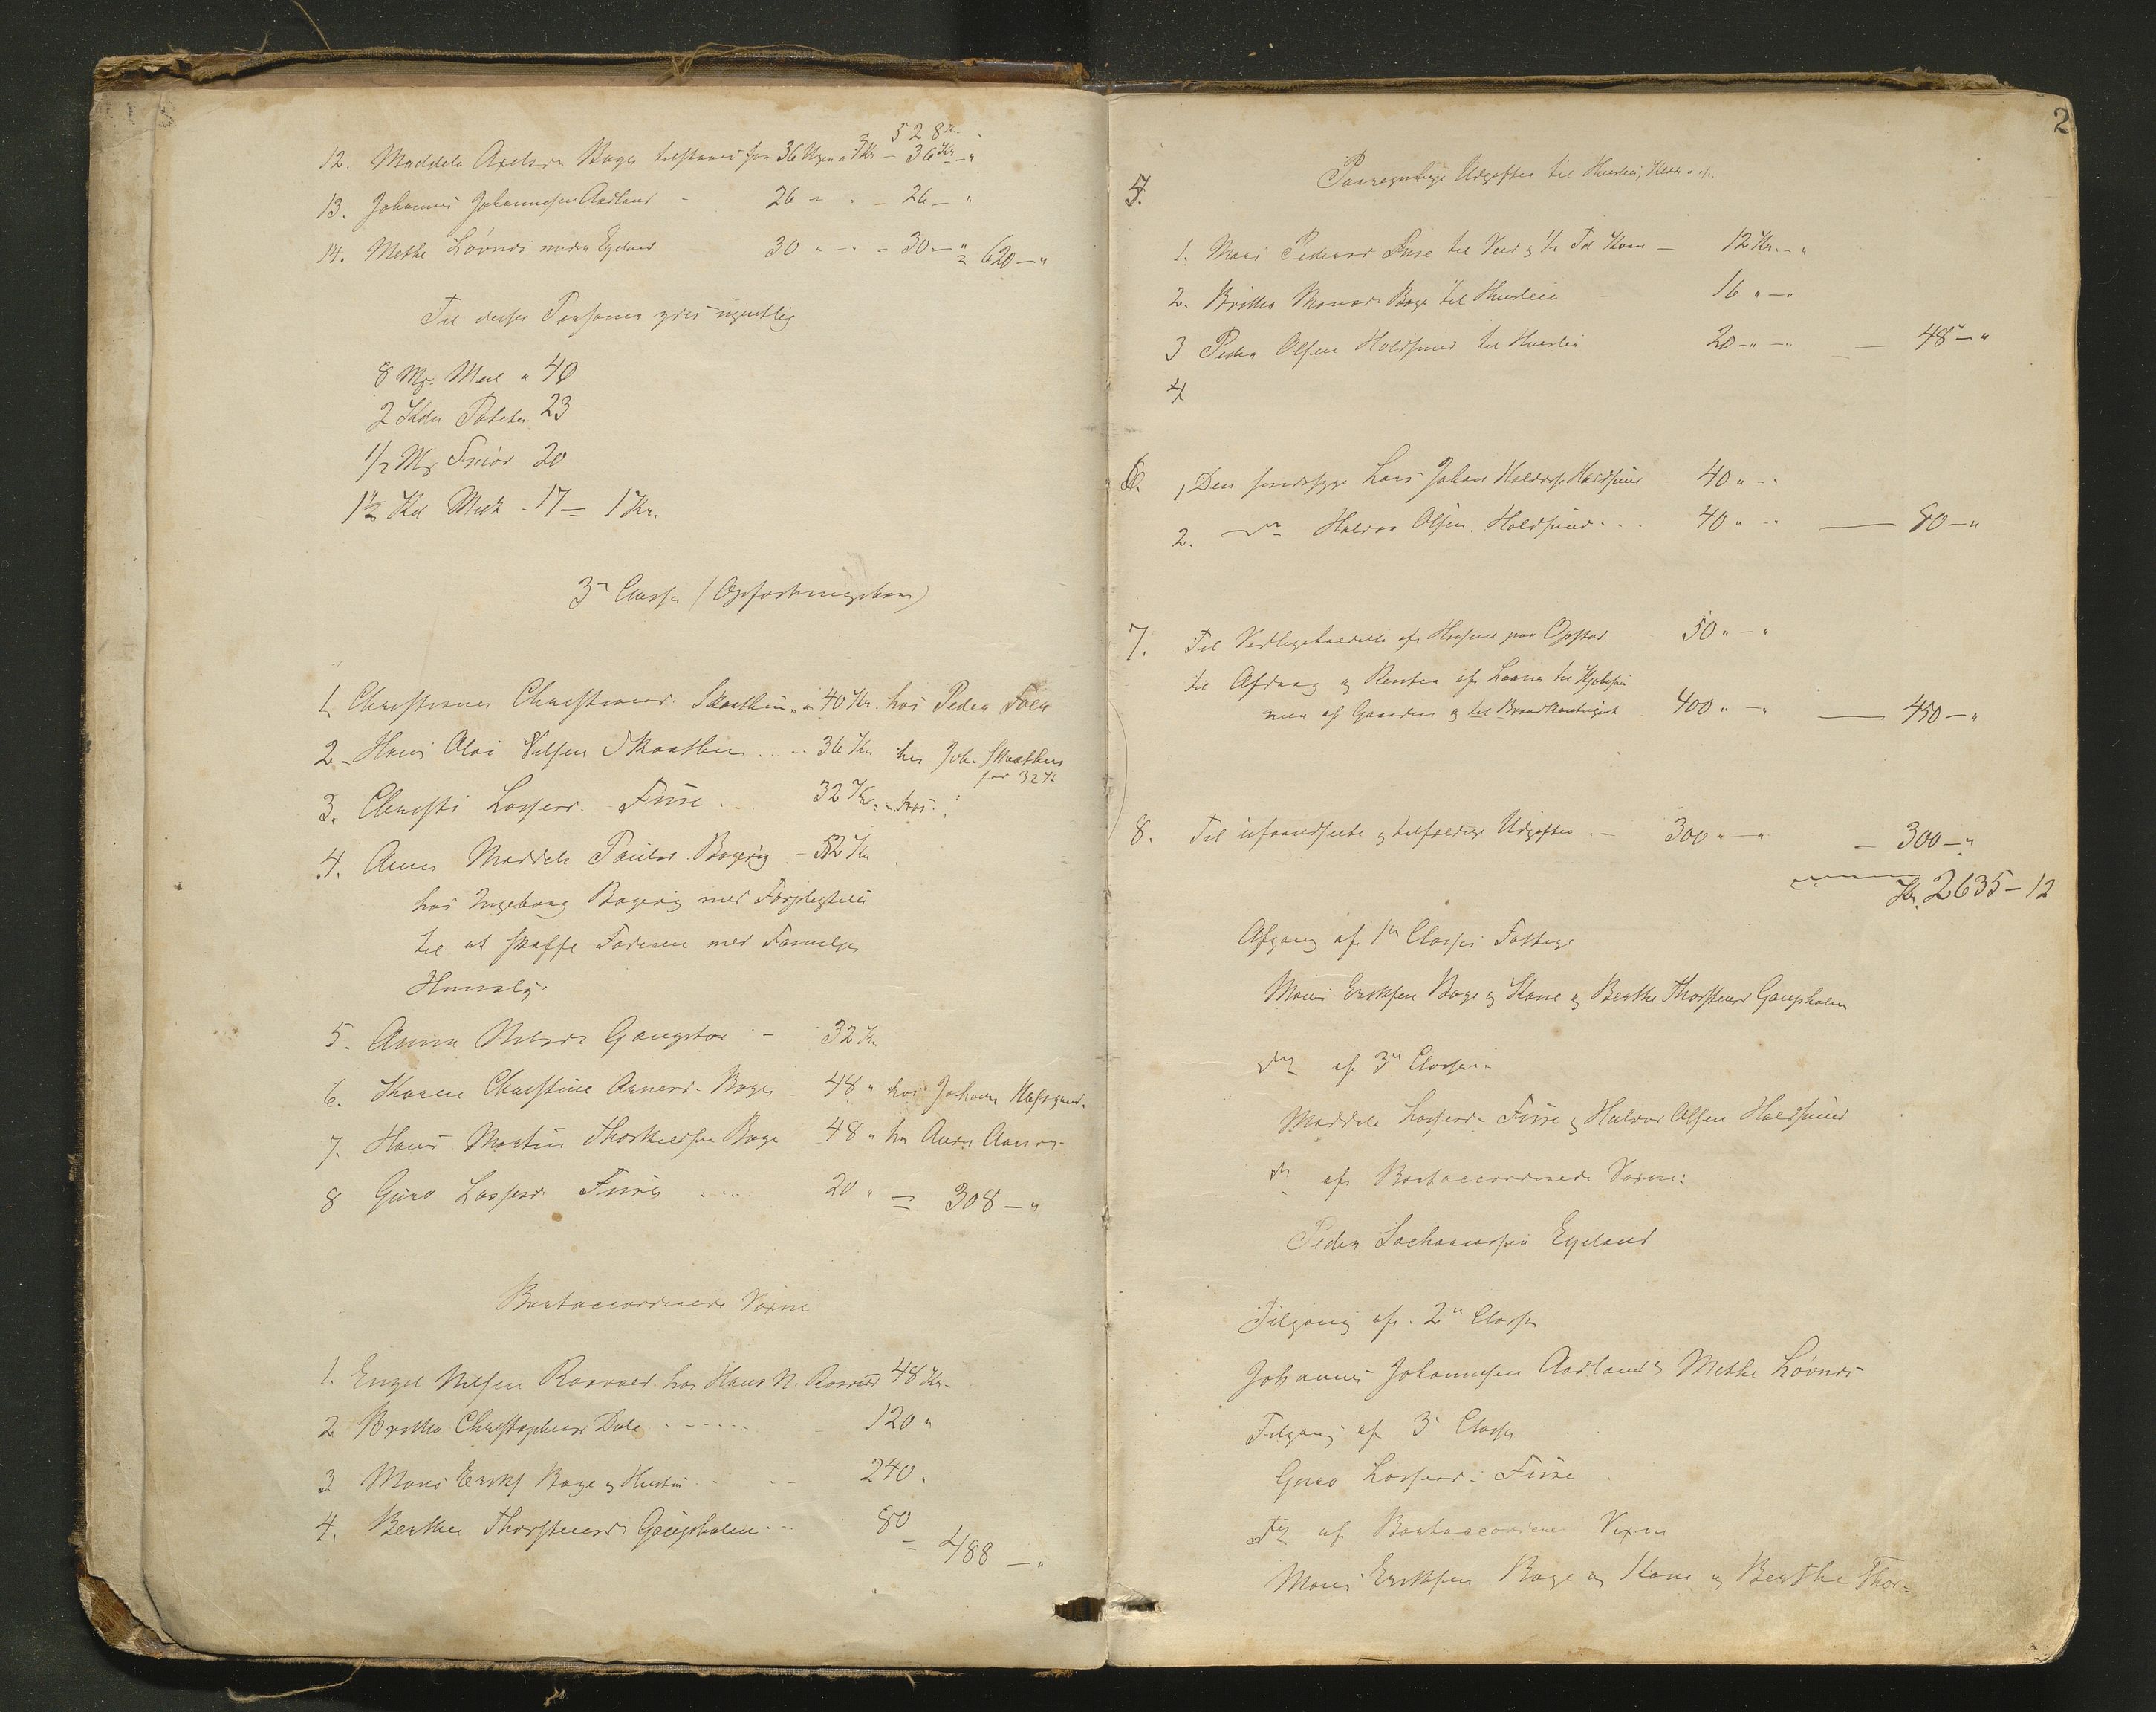 528 Kr.
12. Maddela Axelsdr Bage tilstaaes for 36 Uger a 1 Kr - 36 Kr - "
13. Johannes Johannesen Aadland - 26 " - 26 - "
14. Methe Løvnes Egeland 30 " - - 30 - " = 620 - "
Til disse Personer ydes ugentlig
8 Mg. Meel a 40
2 Kdr Poteter 23
1/2 Mg Smør 20
1 1/2 Kd Melk - 17 = 1 Kr.
3die Classe (Opfostringsbørn)
1. Christiane Christiansd. Skaathun " 40 Kr. hos Peder
2. Hans Olai Nilsen Skaathun .. - 36 Kr hos Joh. Skaathun
for 32 K
3. Christi Lassesd. Fuse . . 32 Kr. - hos .
4. Anna Maddela Paulsd. Bagevig - 32 Kr
hos Ingeborg Bagevig med Forpligtelse
til at skaffe Faderen med Familje
Huusly.
5. Anna Nilsdr Gangstøe - 32 Kr
6. Karen Christine Arnesd. Bage 48 " hos Johan
7. Hans Martin Thorkildsen Bage 48 " hos Anders
8 Guro Lassesd. Fuse .... 20 " = 308 - "
Bortaccorderede Voxne
1. Engel Nilsen Rosvold hos Hans N. Rosvold 48 Kr.
2 Britha Christophersd Dale - - - - - - 120 "
3 Mons Eriks Bage og Hustru - - 240.
4. Berthe Thorstensdr Gaupholm - - 80 = 488 - "
2
5. Paaregnelige Udgifter til Huusleie, Klæder o. s. v.
1. Mons Pedersen Fuse til Ved og 1/2 Td Korn - 12 Kr. - "
2. Britha Monsdr Bage til Huusleie - 16 " - "
3 Peder Olsen Holdhuus til Huusleie 20 - " - - 48 - "
4
6. 1, Den sindssyge Lars Johan Haldors. Holdhuus 40 " - -
2. do Haldor Olsen Holdhuus - - - 40 " - - 80 - "
7. Til Vedligeholdelse af Husene paa Opstad. 50 " - "
til Afdrag og Renter af Laanet til Kjøbesum
men af Gaarden og til Brandkontingent 400 " - " - 450 - "
8. Til uforudseete og tilfældige Udgifter - 300 " - " - 300 - "
Kr. 2635 - 12
Afgang af 1ste Classes Fattige
Mons Eriksen Bage og Kone og Berthe Thorstensd Gaupholm
do af 3die Classe:
Maddela Lassesdr Fuse og Haldor Olsen Holdhuus
do af Bortaccorderede Voxne:
Peder Zachariassen Egeland
Tilgang af 2den Classe
Johannes Johannesen Aadland og Methe Løvnes
Tilgang af 3die Classe
Guro Lassesd. Fuse
do af Bortaccorderede Voxne
Mons Eriksen Bage og Kone og Berthe Thor-